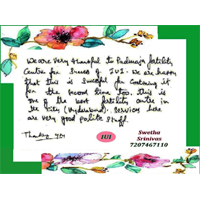 We are very thankful to Padmaja fertility
Centre for Sucess of IUI. We are happy
that this is sucessful for Continuing it
for the second time too. this is
one of the best fertility centre in
the City (Hyderabad). Services here
are very good polite staff.
Thank you
IUI
Swetha
Srinivas
7207467110